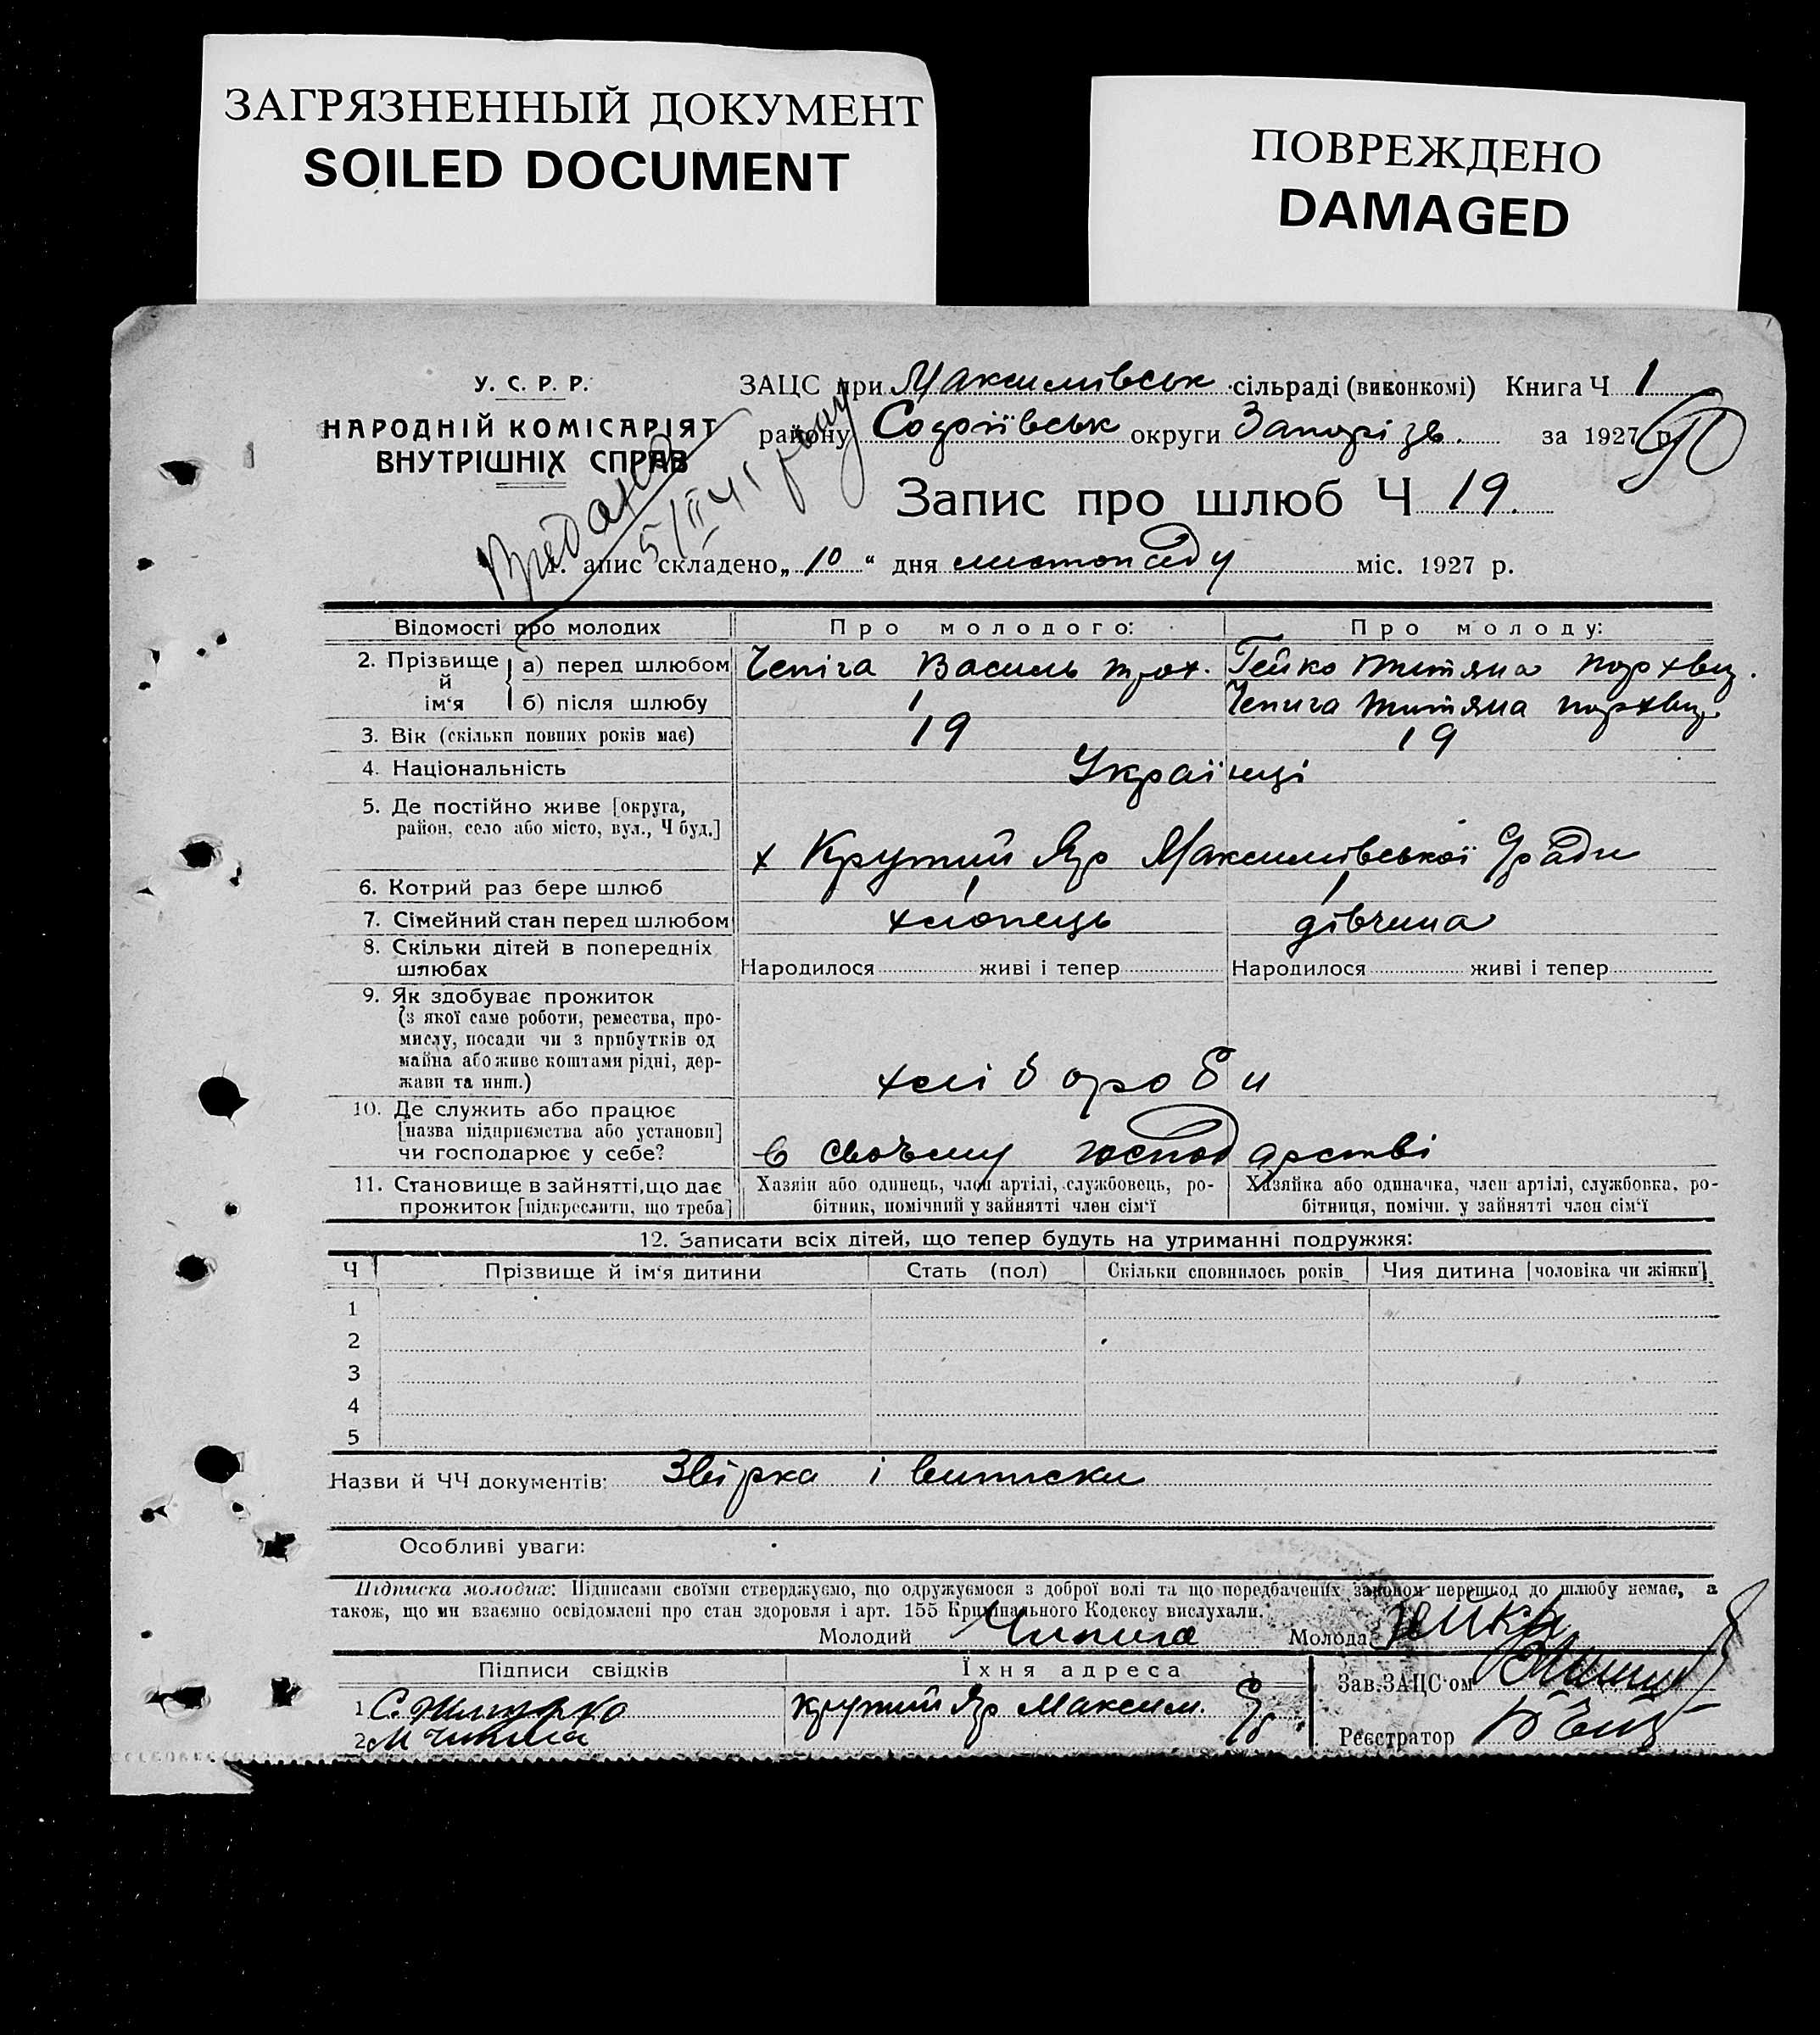 ЗАГРЯЗНЕННЫЙ ДОКУМЕНТ
SOILED DOCUMENT
ПОВРЕЖДЕНО
DAMAGED
У. С. Р. Р.
НАРОДНІЙ КОМІСАРІЯТ
ВНУТРІШНІХ СПРАВ
ЗАЦС при Максимівськ сільраді (виконкомі) Книга Ч 1
району Софіївськ округи Запорізь. за 1927 р.
90
Запис про шлюб Ч 19.
5/II 41
апис складено „ 10 “ дня листопаду міс. 1927 р.
Відомості про молодих Про молодого: Про молоду:
2. Прізвище й ім'я а) перед шлюбом Чепіга Василь Трох. Гейко Титяна Порхвы.
б) після шлюбу Чепига Титяна Порхвы.
3. Вік (скільки повних років має) 19 19
4. Національність Українці
5. Де постійно живе [округа,
район, село або місто, вул., Ч буд.]
х Крутий Яр Максимівської С/ради
6. Котрий раз бере шлюб 1 1
7. Сімейний стан перед шлюбом хлопець дівчина
8. Скільки дітей в попередніх
шлюбах Народилося живі і тепер Народилося живі і тепер
9. Як здобуває прожиток
(з якої саме роботи, ремества, про-
мислу, посади чи з прибутків од
майна або живе коштами рідні, дер-
жави та инш.) хліброби
10. Де служить або працює
[назва підприємства або установи]
чи господарює у себе? в своъму господарстві
11. Становище в зайнятті, що дає
прожиток [підкреслити, що треба]
Хазяїн або одинець, член артілі, службовець, ро-
бітник, помічний у зайнятті член сім'ї
Хазяйка або одиначка, член артілі, службовка, ро-
бітниця, помічн. у зайнятті член сім'ї
12. Записати всіх дітей, що тепер будуть на утриманні подружжя:
Ч Прізвище й ім'я дитини Стать (пол) Скільки сповнилось років Чия дитина [чоловіка чи жінки]
1
2
3
4
5
Назви й ЧЧ документів: Звірка і виписки
Особливі уваги:
Підписка молодих: Підписами своїми стверджуємо, що одружуємося з доброї волі та що передбачених законом перешкод до шлюбу немає, а
також, що ми взаємно освідомлені про стан здоровля і арт. 155 Кримінального Кодексу вислухали.
Молодий Чипига Молода
Підписи свідків Їхня адреса Зав. ЗАЦС'ом
1 Крутий Яр Максим. С/р.
2 Реєстратор